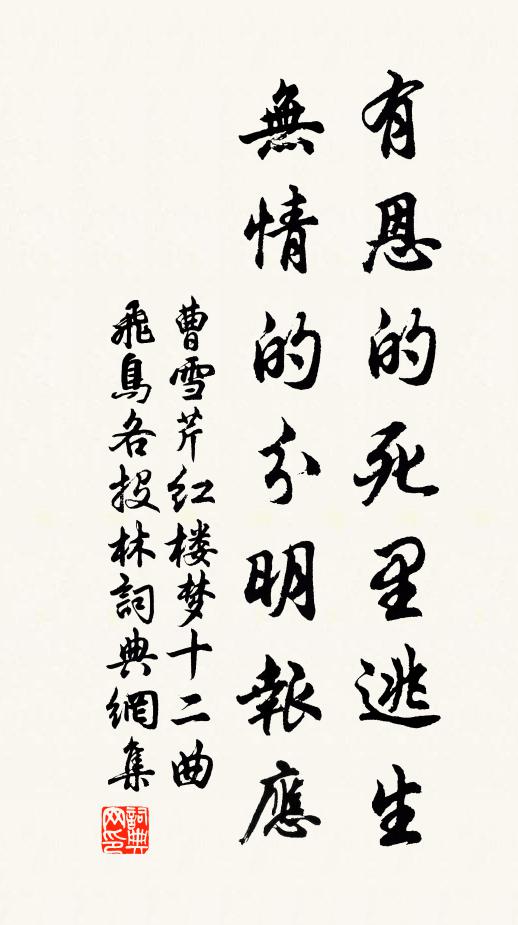 有恩的死里逃生
無情的分明報應
曹雪芹红楼梦十二曲
飛鳥各投林詞典網集
詞典网印